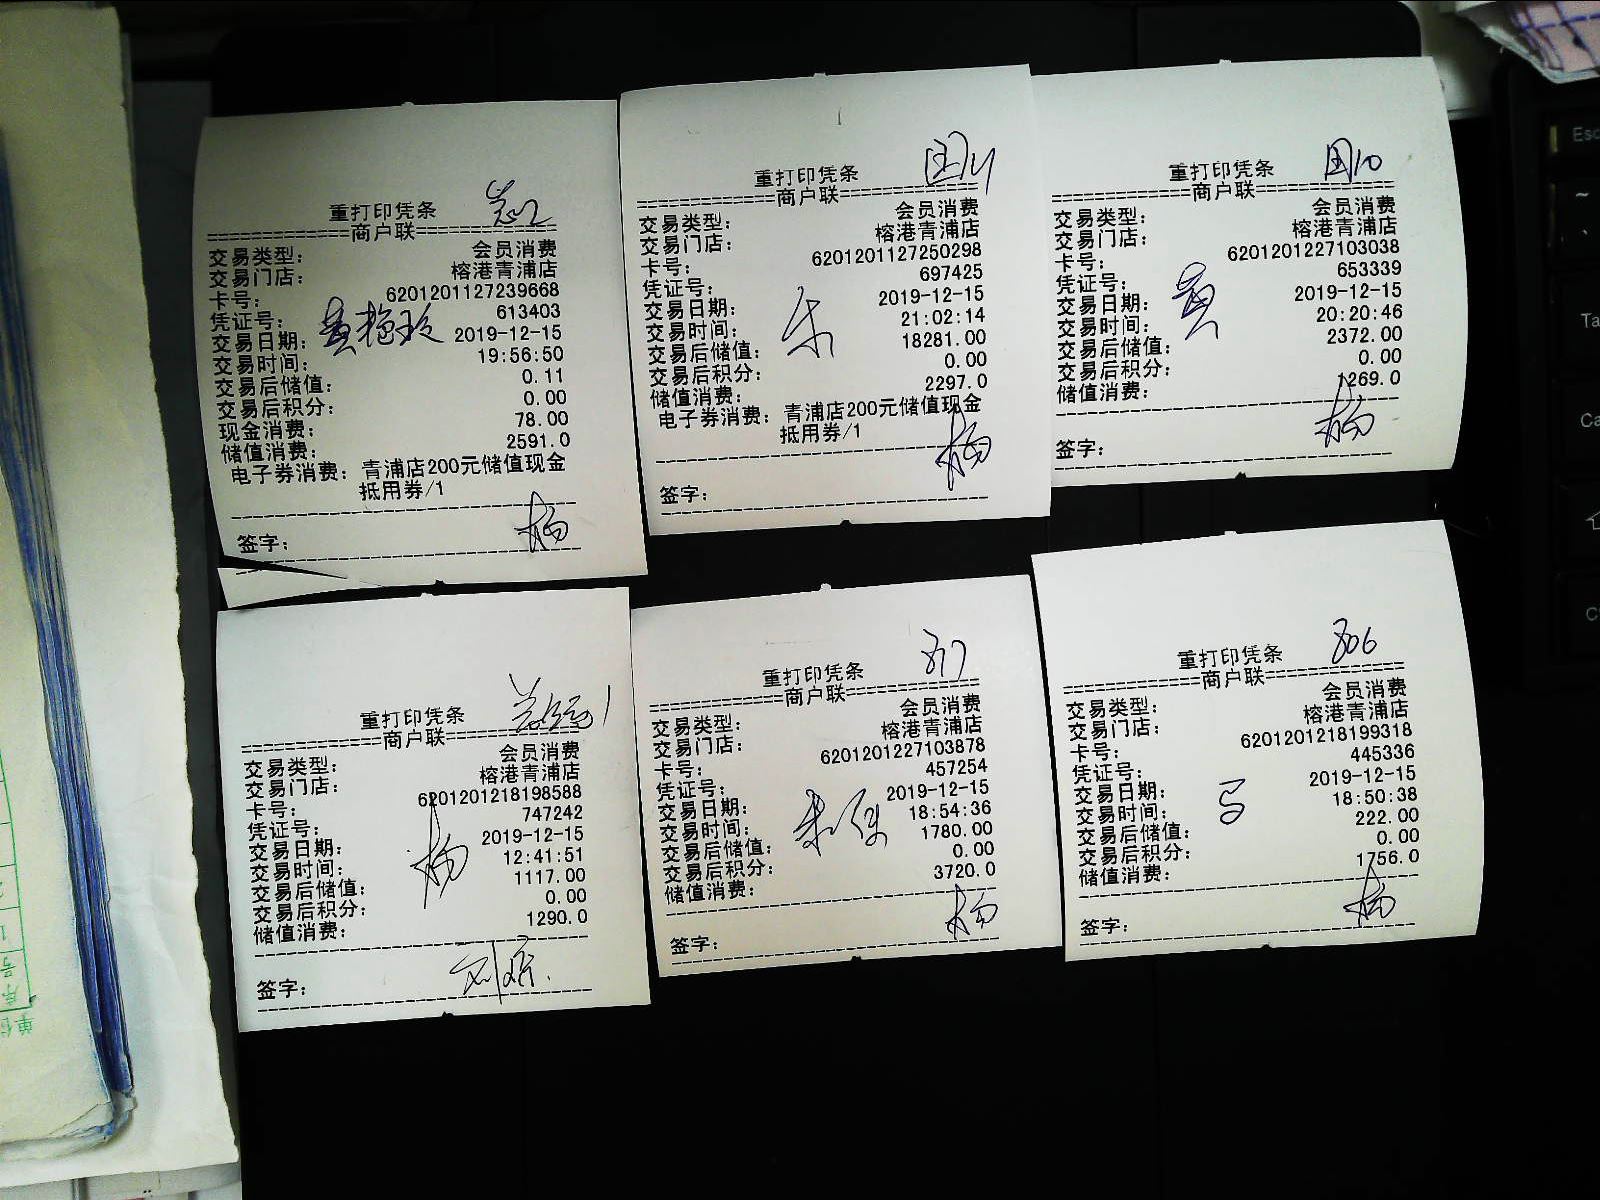 重打印凭条
商户联
交易类型： 会员消费
交易门店： 榕港青浦店
卡号： 6201201127239668
凭证号： 613403
交易日期： 2019-12-15
交易时间： 19:56:50
交易后储值： 0.11
交易后积分： 0.00
现金消费： 78.00
储值消费： 2591.0
电子券消费： 青浦店200元储值现金
抵用券/1
签字： 杨
黄艳玲
重打印凭条
商户联
交易类型： 会员消费
交易门店： 榕港青浦店
卡号： 6201201127250298
凭证号： 697425
交易日期： 2019-12-15
交易时间： 21:02:14
交易后储值： 18281.00
交易后积分： 0.00
储值消费： 2297.0
电子券消费： 青浦店200元储值现金
抵用券/1
签字： 杨
重打印凭条
商户联
交易类型： 会员消费
交易门店： 榕港青浦店
卡号： 6201201227103038
凭证号： 653339
交易日期： 2019-12-15
交易时间： 20:20:46
交易后储值： 2372.00
交易后积分： 0.00
储值消费： 1269.0
签字： 杨
黄
重打印凭条
商户联
交易类型： 会员消费
交易门店： 榕港青浦店
卡号： 6201201218198588
凭证号： 747242
交易日期： 2019-12-15
交易时间： 12:41:51
交易后储值： 1117.00
交易后积分： 0.00
储值消费： 1290.0
杨
签字：
817
重打印凭条
商户联
交易类型： 会员消费
交易门店： 榕港青浦店
卡号： 6201201227103878
凭证号： 457254
交易日期： 2019-12-15
交易时间： 18:54:36
交易后储值： 1780.00
交易后积分： 0.00
储值消费： 3720.0
签字： 杨
806
重打印凭条
商户联
交易类型： 会员消费
交易门店： 榕港青浦店
卡号： 6201201218199318
凭证号： 445336
交易日期： 2019-12-15
交易时间： 18:50:38
交易后储值： 222.00
交易后积分： 0.00
储值消费： 1756.0
签字： 杨
马
Esc